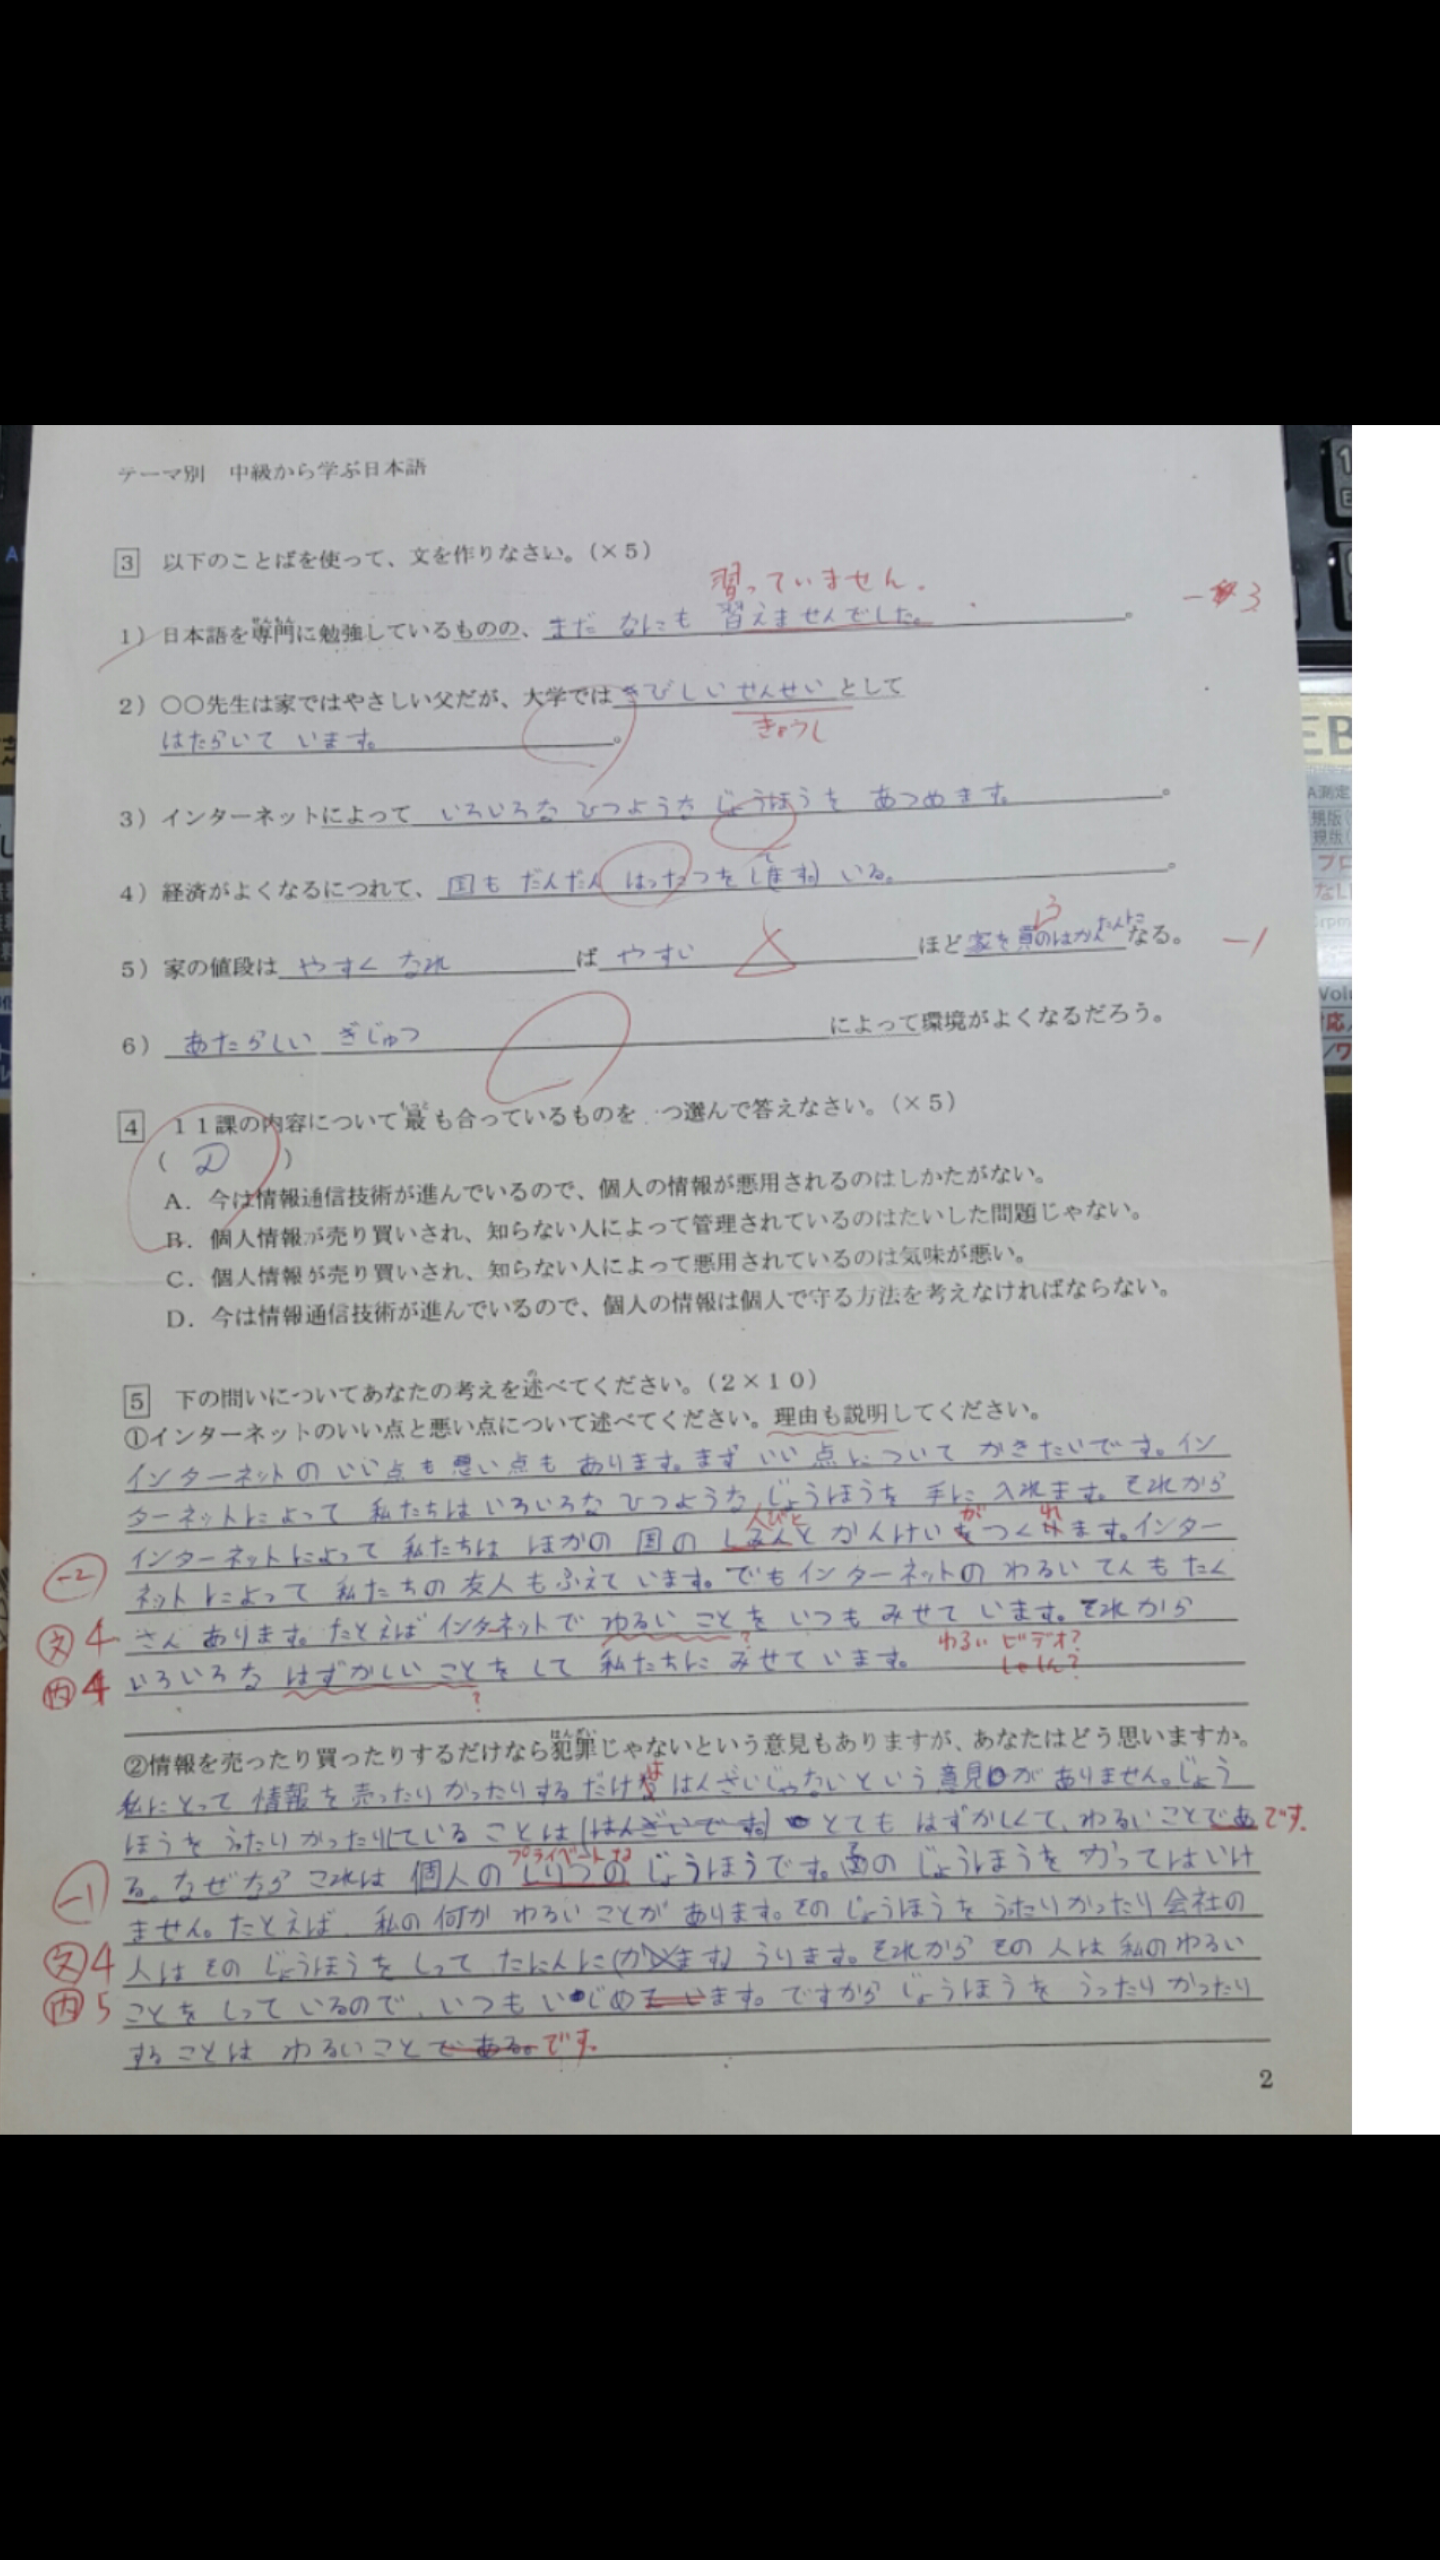 テーマ別　中級から学ぶ日本語
3　以下のことばを使って、文を作りなさい。（×５）
習っていません.
1）日本語を専門に勉強しているものの、まだ なにも 習えませんでした。 -3
2）○○先生は家ではやさしい父だが、大学ではきびしい せんせい として
きょうし
はたらいて います。
3）インターネットによって いろいろな ひつような じょうほうを あつめます。
4）経済がよくなるにつれて、国も だんだん はったつを して いる。
5）家の値段は やすく なれ ば やすい ほど 家を買うのはかんたんに なる。 -1
6）あたらしい ぎじゅつ によって環境がよくなるだろう。
4　１１課の内容について最も合っているものを つ選んで答えなさい。（×５）
（ D ）
A．今は情報通信技術が進んでいるので、個人の情報が悪用されるのはしかたがない。
B．個人情報が売り買いされ、知らない人によって管理されているのはたいした問題じゃない。
C．個人情報が売り買いされ、知らない人によって悪用されているのは気味が悪い。
D．今は情報通信技術が進んでいるので、個人の情報は個人で守る方法を考えなければならない。
5　下の問いについてあなたの考えを述べてください。（２×１０）
①インターネットのいい点と悪い点について述べてください。理由も説明してください。
インターネットの いい点も 悪い点も あります。まず いい 点に ついて かきたいです。イン
ターネットによって 私たちは いろいろな ひつような じょうほうを 手に 入れます。それから
人びと が れ
インターネットによって 私たちは ほかの 国の しみんと かんけい を つくります。インター
-2 ネットによって 私たちの 友人も ふえて います。でも インターネットの わるい てんも たく
文 4 さん あります。たとえば インタネットで わるい ことを いつも みせて います。それから
わるい ビデオ?
しゃしん?
内 4 いろいろな はずかしい ことを して 私たちに みせています。
②情報を売ったり買ったりするだけなら犯罪じゃないという意見もありますが、あなたはどう思いますか。
私にとって 情報を 売ったり かったりする だけは はんざいじゃないという 意見が ありません。じょう
ほうを うたり かったりしている ことは (はんざいです。) とても はずかしくて、わるいことであ です.
プライベートな
-1 る。なぜなら これは 個人の しりつの じょうほうです。 のじょうほうを かってはいけ
ません。たとえば、私の何か わるい ことが あります。そのじょうほうを うったり かったり 会社の
文 4 人は その じょうほうを しって たにんに うります。それから その 人は 私の わるい
内 5 ことを しって いるので、いつも いじめています。ですから じょうほうを うったり かったり
することは わるいことで ある。です.
2